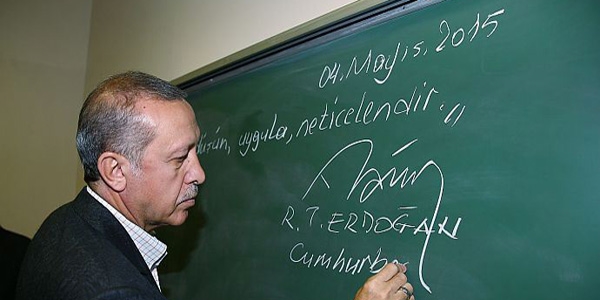 04. Mayıs. 2015
düşün, uygula, neticelendir."
R. T. ERDOĞAN
Cumhurba